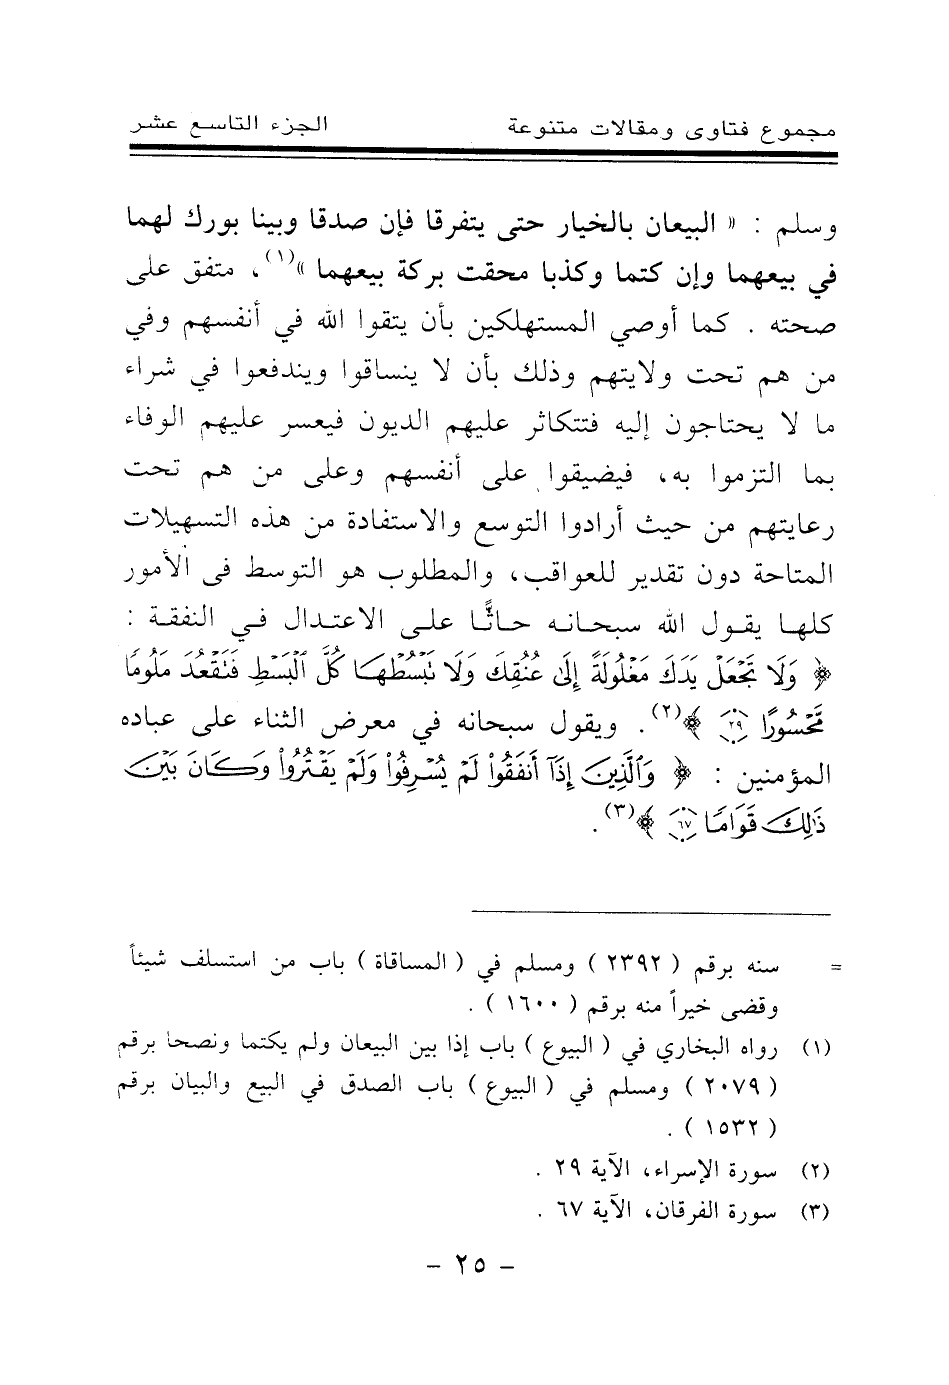 مجموع فتاوى ومقالات متنوعة الجزء التاسع عشر
وسلم : « البيعان بالخيار حتى يتفرقا فإن صدقا وبينا بورك لهما
في بيعهما وإن كتما وكذبا محقت بركة بيعهما »(١)، متفق على
صحته . كما أوصي المستهلكين بأن يتقوا الله في أنفسهم وفي
من هم تحت ولايتهم وذلك بأن لا ينساقوا ويندفعوا في شراء
ما لا يحتاجون إليه فتتكاثر عليهم الديون فيعسر عليهم الوفاء
بما التزموا به، فيضيقوا على أنفسهم وعلى من هم تحت
رعايتهم من حيث أرادوا التوسع والاستفادة من هذه التسهيلات
المتاحة دون تقدير للعواقب، والمطلوب هو التوسط في الأمور
كلها يقول الله سبحانه حاثًّا على الاعتدال في النفقة :
﴿ وَلَا تَجْعَلْ يَدَكَ مَغْلُولَةً إِلَىٰ عُنُقِكَ وَلَا تَبْسُطْهَا كُلَّ الْبَسْطِ فَتَقْعُدَ مَلُومًا
مَّحْسُورًا ٢٩ ﴾(٢). ويقول سبحانه في معرض الثناء على عباده
المؤمنين : ﴿ وَالَّذِينَ إِذَا أَنفَقُوا لَمْ يُسْرِفُوا وَلَمْ يَقْتُرُوا وَكَانَ بَيْنَ
ذَٰلِكَ قَوَامًا ٦٧ ﴾(٣).
= سنه برقم ( ٢٣٩٢ ) ومسلم في ( المساقاة ) باب من استسلف شيئاً
وقضى خيراً منه برقم ( ١٦٠٠ ) .
(١) رواه البخاري في ( البيوع ) باب إذا بين البيعان ولم يكتما ونصحا برقم
( ٢٠٧٩ ) ومسلم في ( البيوع ) باب الصدق في البيع والبيان برقم
( ١٥٣٢ ) .
(٢) سورة الإسراء، الآية ٢٩ .
(٣) سورة الفرقان، الآية ٦٧ .
- ٢٥ -